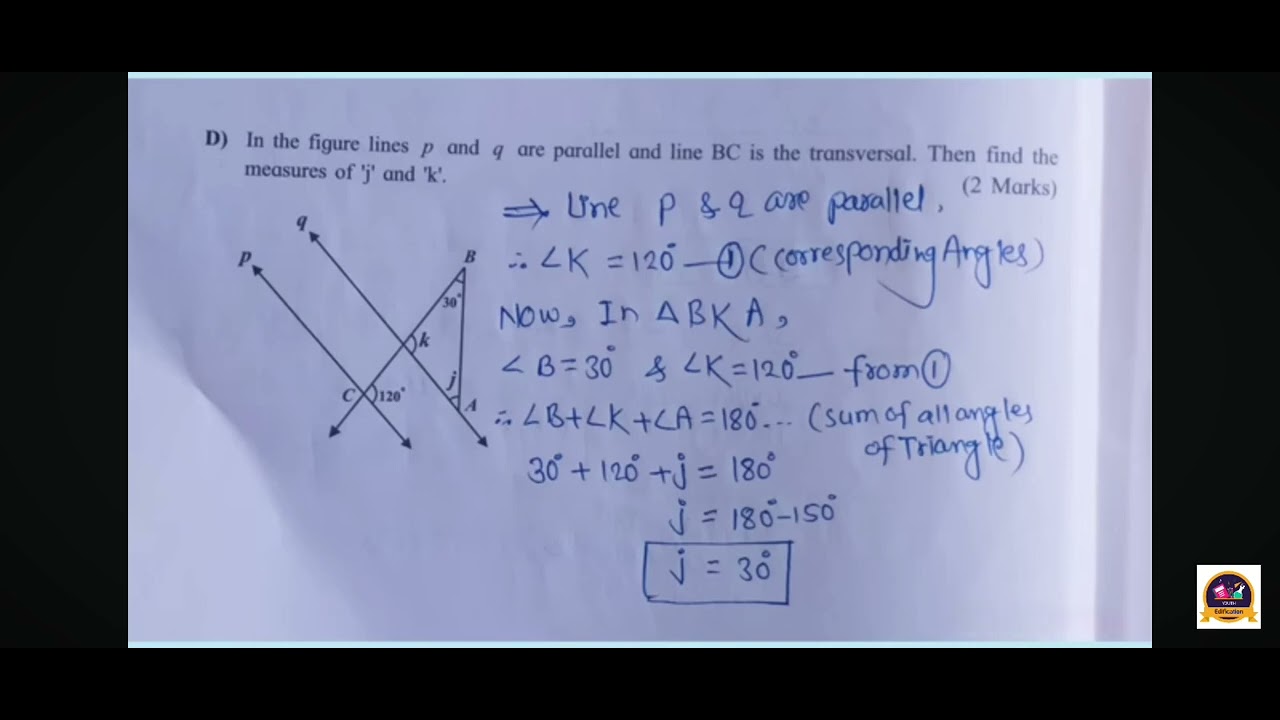 D) In the figure lines p and q are parallel and line BC is the transversal. Then find the
measures of 'j' and 'k'.
(2 Marks)
⇒ Line P & q are parallel,
∴ ∠K = 120° —① (corresponding Angles)
Now, In △BKA,
∠B = 30° & ∠K = 120° — from ①
∴ ∠B + ∠K + ∠A = 180°... (sum of all angles
of Triangle)
30° + 120° + j = 180°
j = 180° - 150°
j = 30°
q
p
B
30°
k
j
C
120°
A
YOUTH
Edification